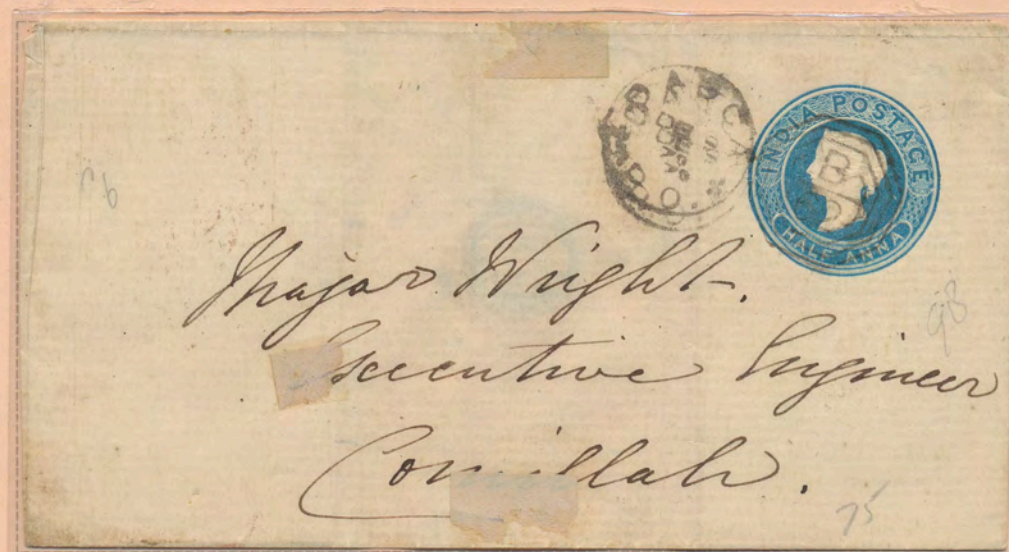 INDIA POSTAGE
HALF ANNA
B
Major Wright.
Executive Engineer
Comillah.
98
75